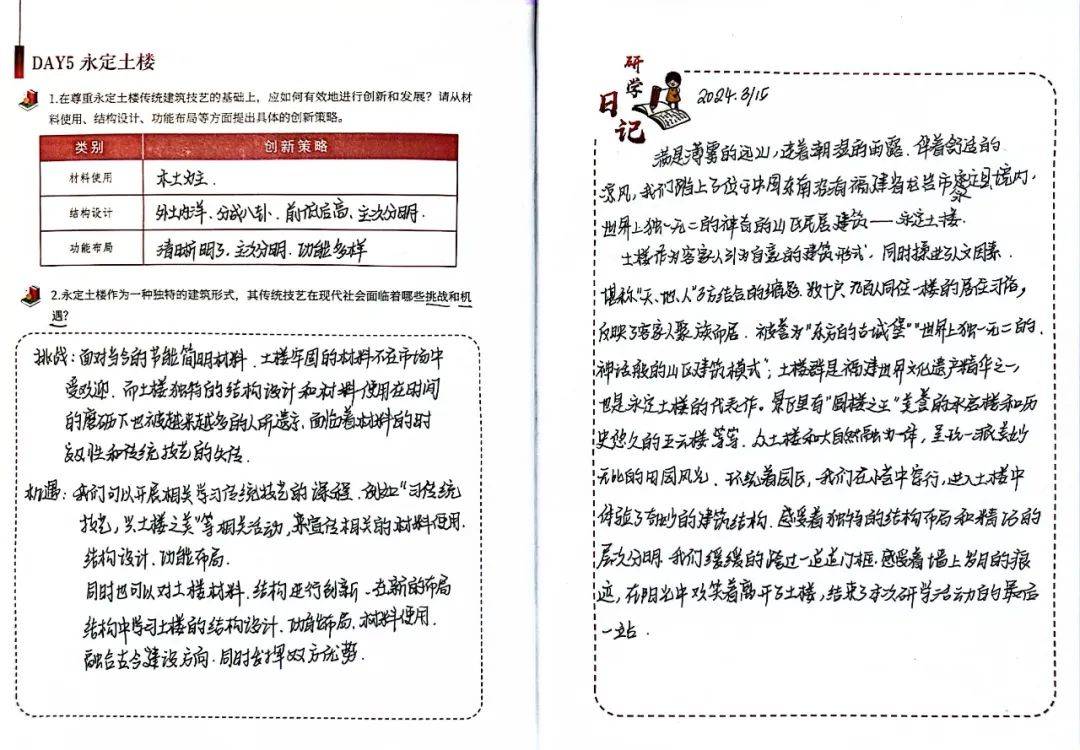 DAY5 永定土楼
1.在尊重永定土楼传统建筑技艺的基础上，应如何有效地进行创新和发展？请从材
料使用、结构设计、功能布局等方面提出具体的创新策略。
类别 创新策略
材料使用 本土为主.
结构设计 外土内洋、分战八卦、前低后高、主次分明.
功能布局 清晰明了、主次分明、功能多样
2.永定土楼作为一种独特的建筑形式，其传统技艺在现代社会面临着哪些挑战和机
遇？
挑战：面对当今的节能简明材料，土楼牢固的材料不在市场中
受欢迎. 而土楼独特的结构设计和材料使用在时间
的磨砺下也被越来越多的人所遗忘, 面临着材料的时
效性和传统技艺的失传.
机遇：我们可以开展相关学习传统技艺的课程. 例如“习传统
技艺，兴土楼之美”等相关活动，来宣传相关的材料使用.
结构设计、功能布局.
同时也可以对土楼材料、结构进行创新、在新的布局
结构中学习土楼的结构设计、功能布局、材料使用.
融合古今建设方向、同时发挥双方优势.
研学日记
2024.3/15
满是薄雾的远山，透着潮湿的雨露、伴着舒适的
凉风，我们踏上了位于中国东南沿海福建省龙岩市永定县境内，
世界上独一无二的神奇的山区民居建筑——永定土楼.
土楼作为客家人引为自豪的建筑形式，同时揉进人文因素，
堪称“天、地、人”三方结合的缩影. 数十户、几百人同住一楼的居住习俗，
反映了客家人聚族而居. 被誉为“东方的古城堡”“世界上独一无二的、
神话般的山区建筑模式”；土楼群是福建世界文化遗产精华之一
也是永定土楼的代表作。景区里有“圆楼之王”美誉的承启楼和历
史悠久的五云楼等等. 众土楼和大自然融为一体，呈现一派美妙
无比的田园风光. 环绕着园区，我们在小巷中穿行，进入土楼中
体验了奇妙的建筑结构. 感受着独特的结构布局和精巧的
层次分明. 我们缓缓的跨过一道道门框. 感受着墙上岁月的痕
迹，在阳光中欢笑着离开了土楼，结束了本次研学活动的最后
一站.